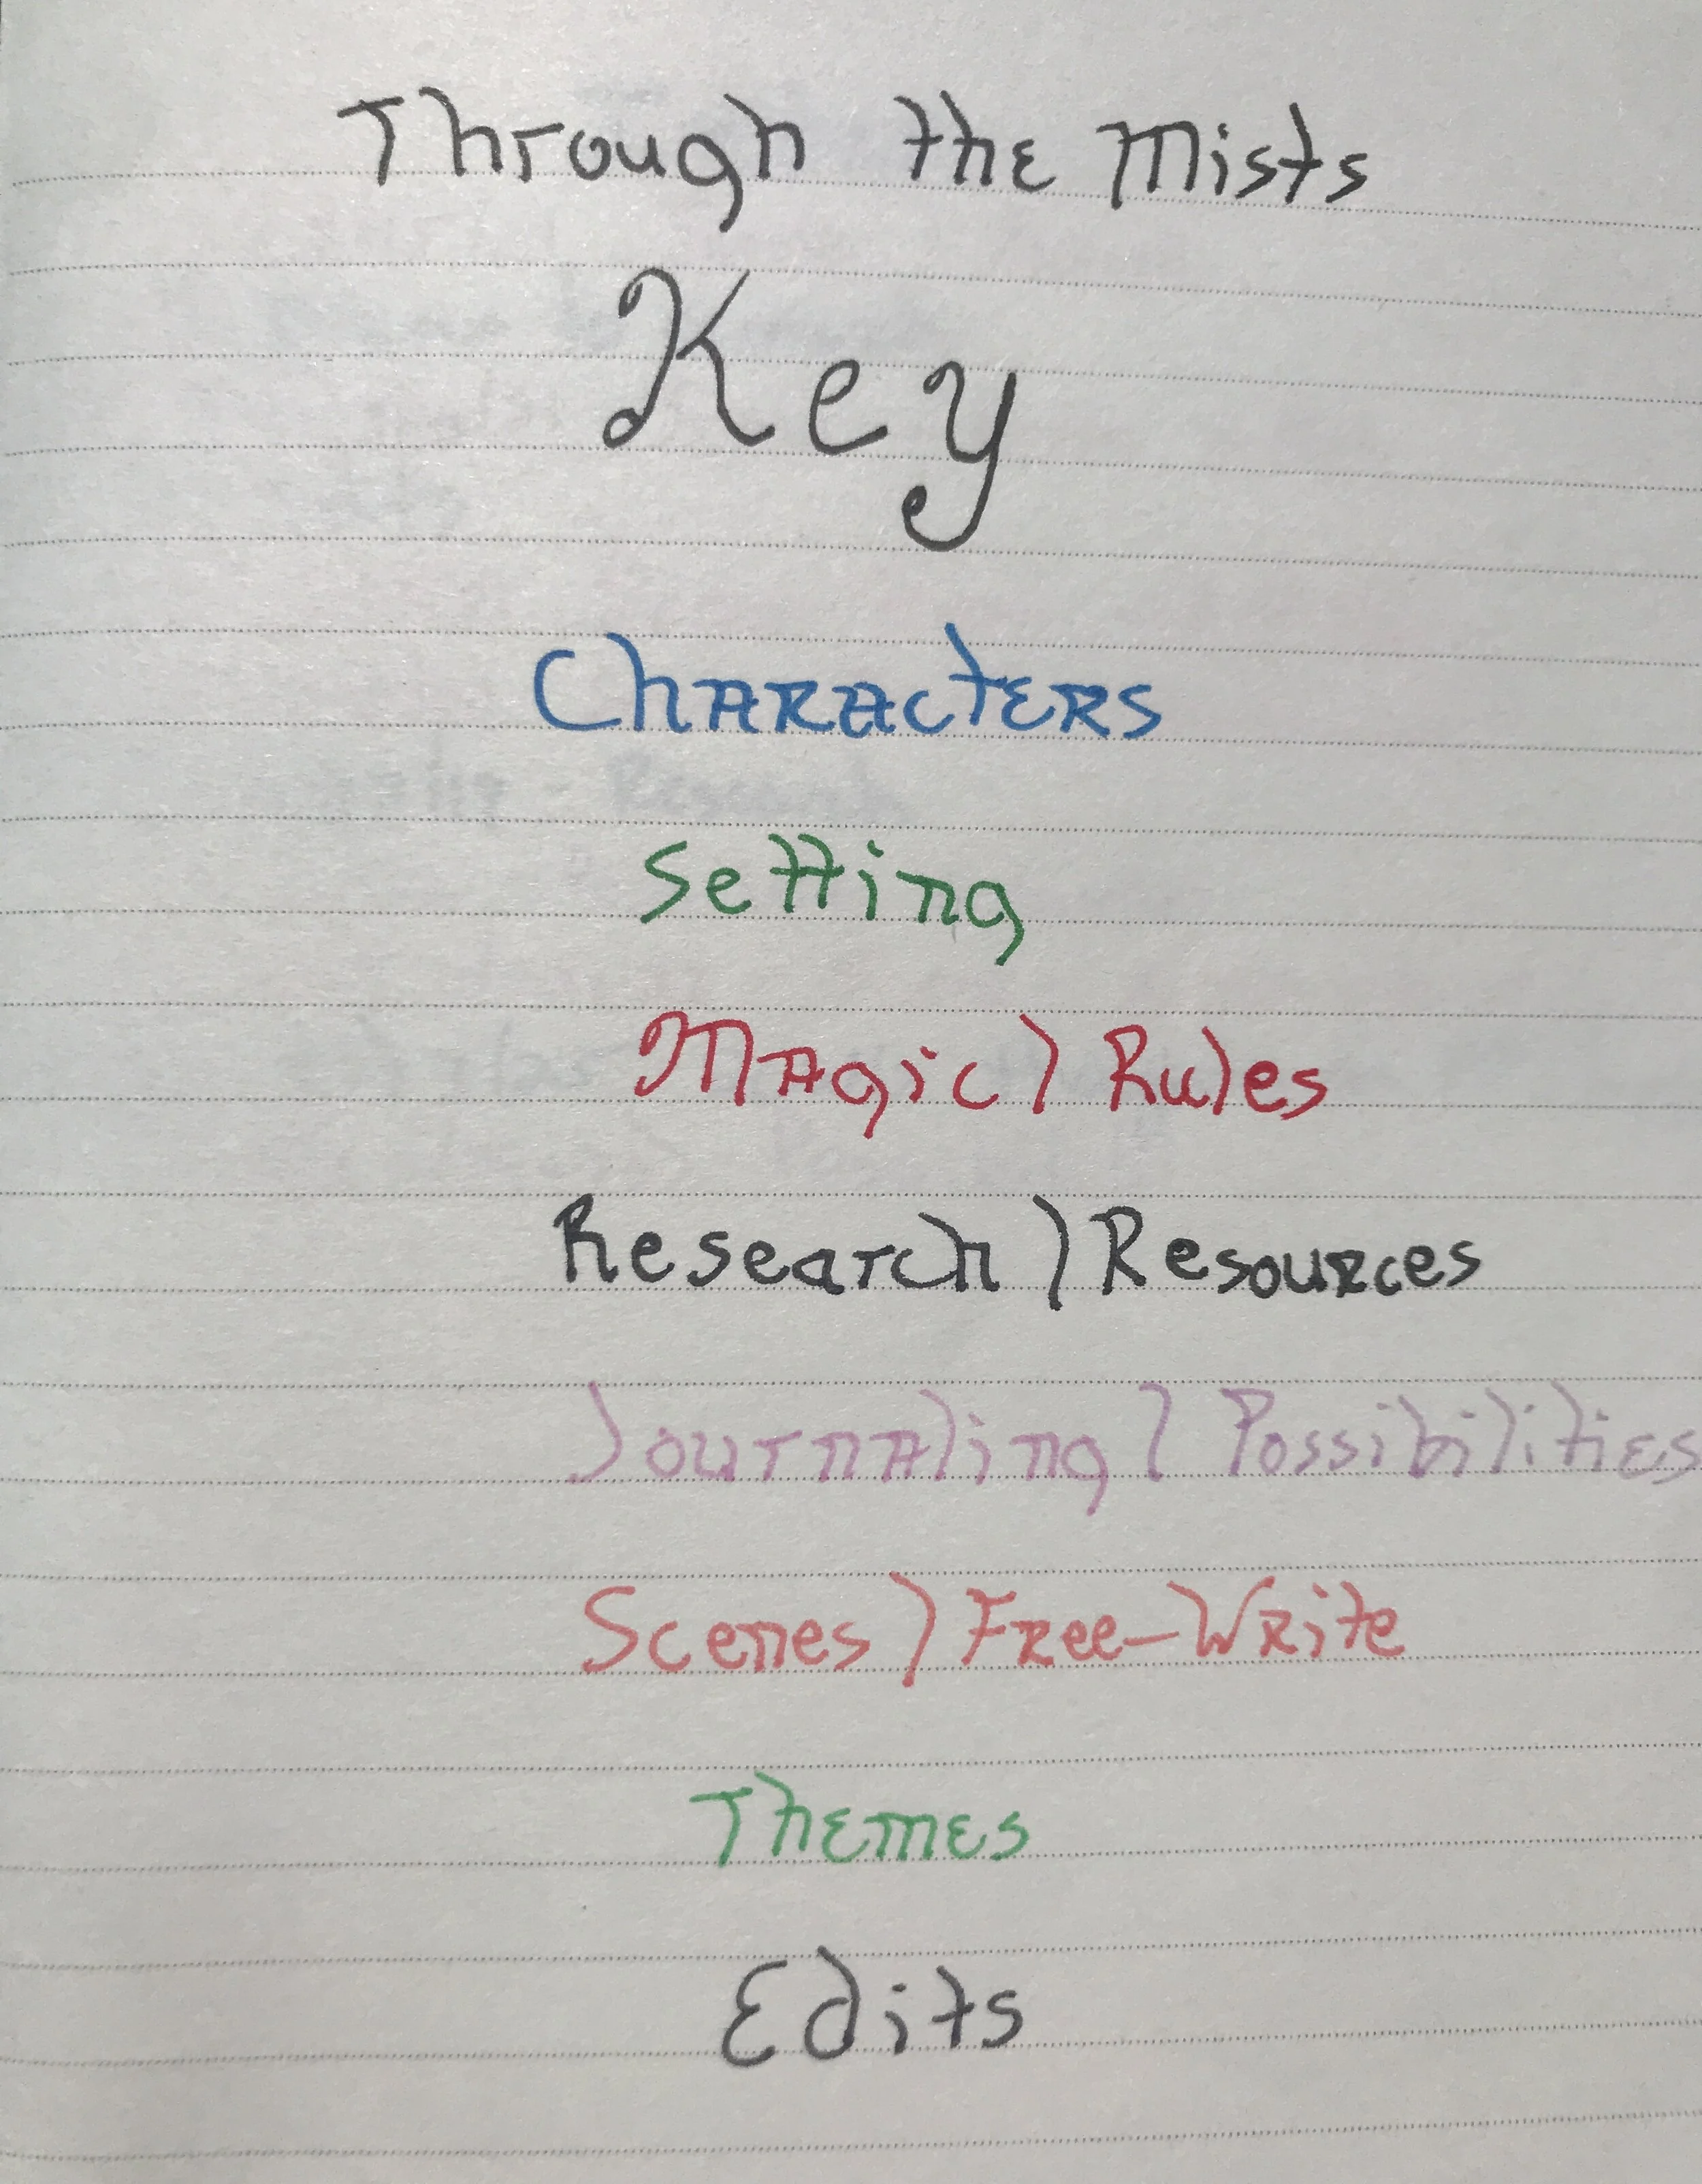 Through the Mists
Key
Characters
Setting
Magic / Rules
Research / Resources
Journaling / Possibilities
Scenes / Free-Write
Themes
Edits